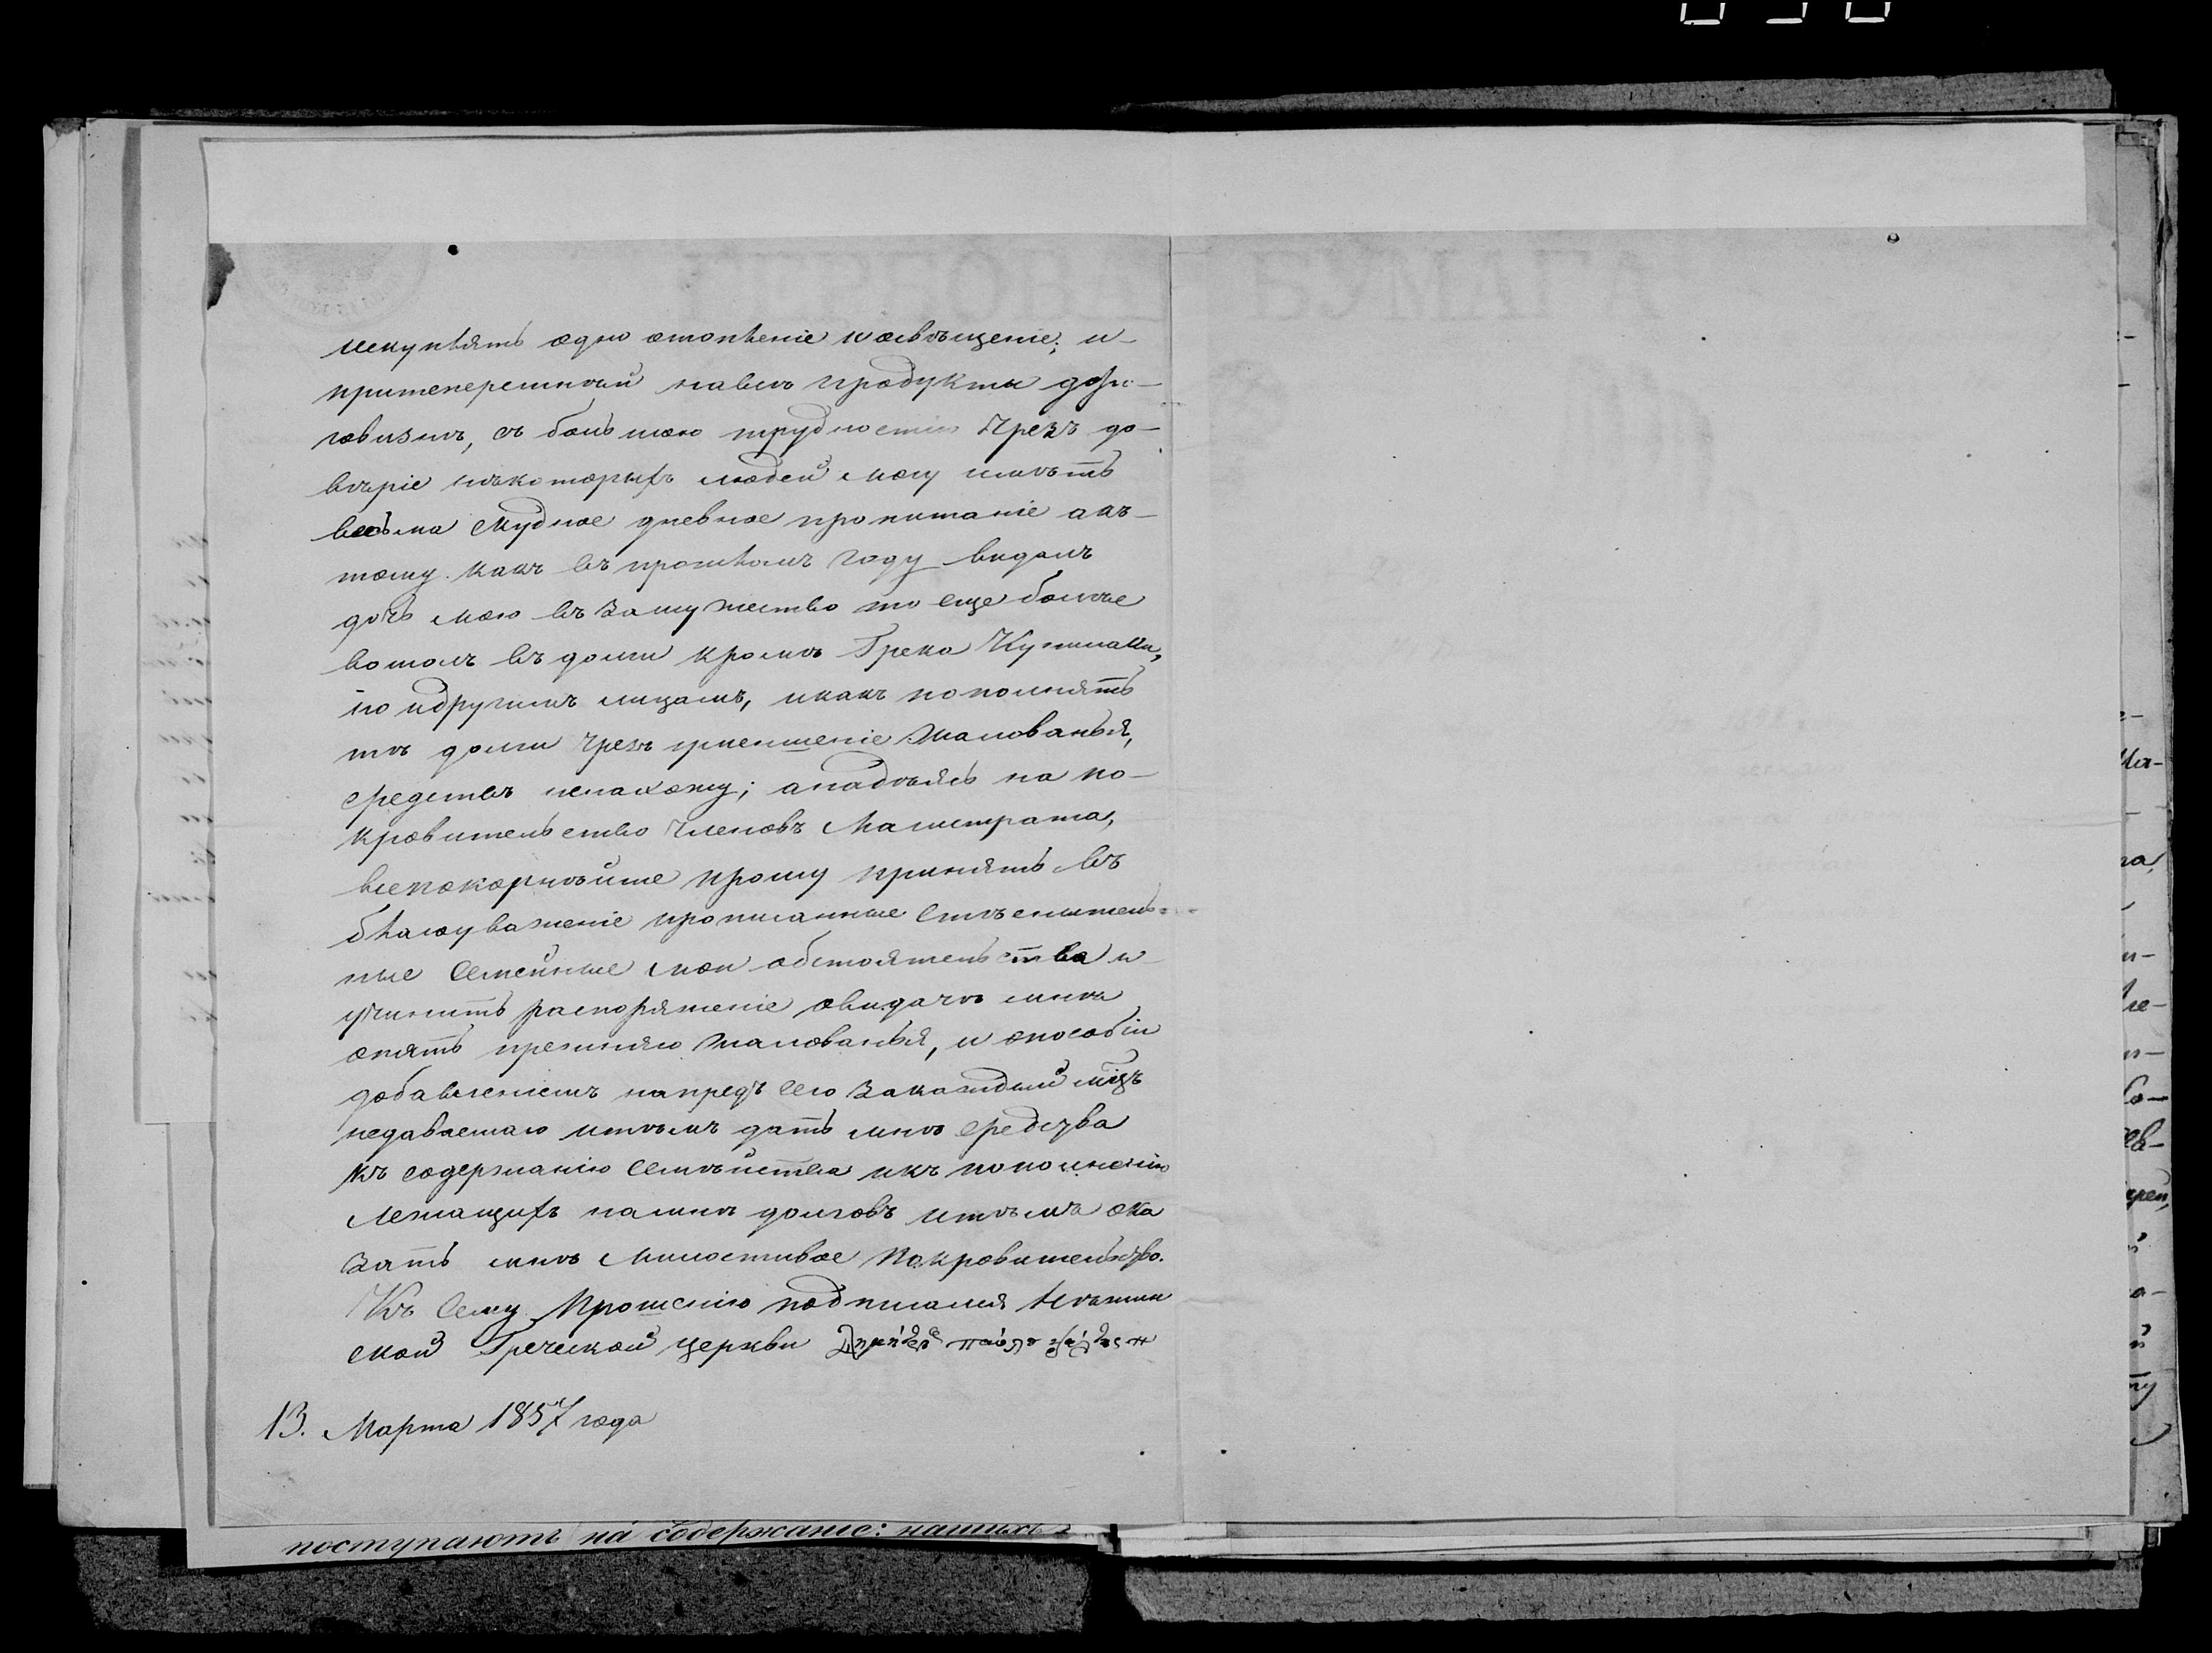 искуплять одно отопленіе и освѣщеніе; и
притеперешнѣй навсѣ продукты доро-
говизнѣ, съ большою трудностію Чрезъ до-
вѣріе нѣкоторыхъ людей могу имѣть
весьма Скудное дневное пропитаніе акъ-
тому какъ въ прошломъ году видалъ
дочь мою въ Замужество то еще болѣе
вошолъ въ долги кромѣ Грека
го идругимъ лицамъ, икакъ пополнять
тѣ долги Чрезъ уменшеніе Жалованья,
средствъ ненахожу; анадѣясь на по-
кровительство Членовъ Магистрата,
всепокорнѣйше прошу принять въ
благоуваженіе прописанные Стѣснитель-
ные Семейные мои обстоятельства и
учинить распоряженіе овидачѣ мнѣ
опять прежняго Жалованья, и опособіи
добавленіемъ напредъ сего Закаждый мцъ
недаваемаго итѣмъ дать мнѣ Средства
къ содержанію Семѣйства икъ пополненію
Лежащихъ намнѣ долговъ итѣмъ ока
зать мнѣ Милостивое Покровительство.
Къ Сему Прошенію подписался Нѣжин
ской Греческой церкви
13. Марта 1857 года
поступаютъ на содержаніе: нашихъ